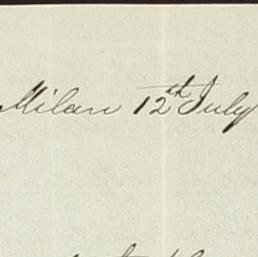 Milan 12th July